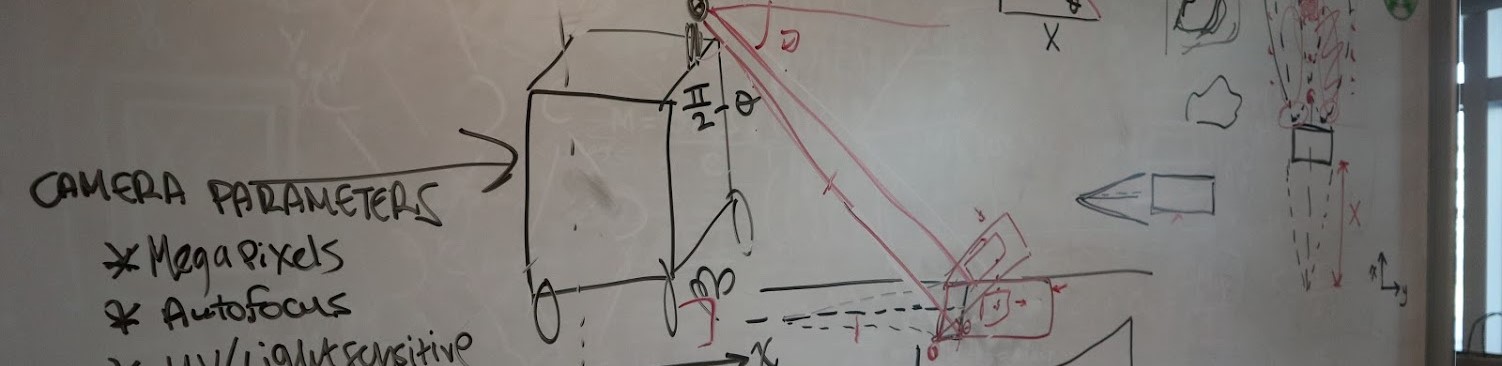 θ
X
π/2 - θ
CAMERA PARAMETERS
* MegaPixels
* Autofocus
* UV/Lightsensitive
X
x
y
x